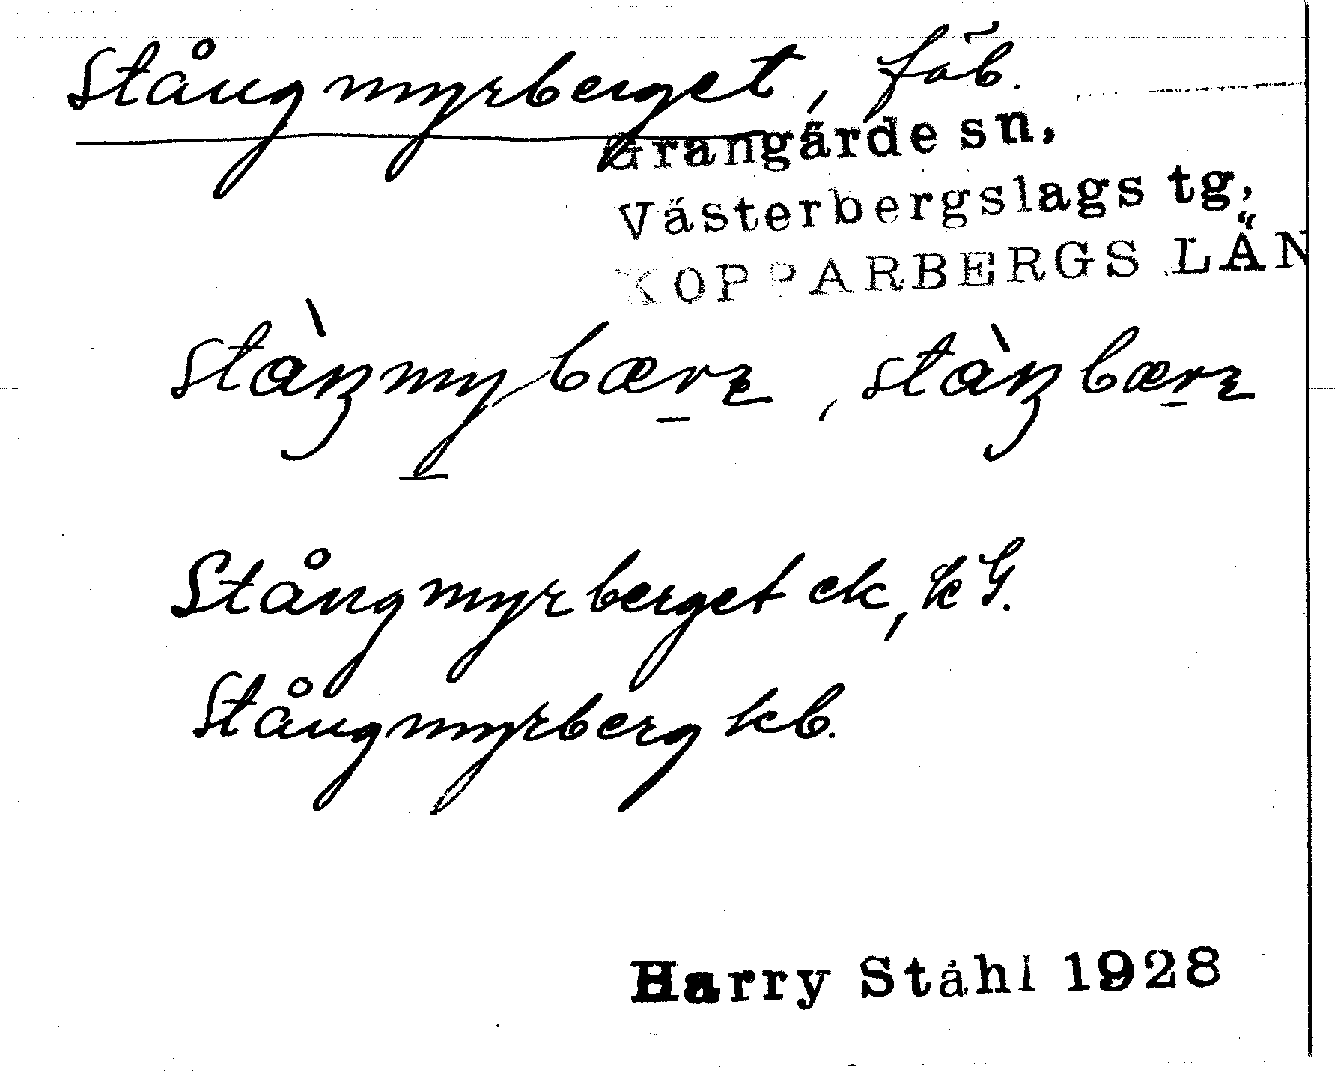 Stångmyrberget, fäb.
Grangärde sn.
Västerbergslags tg,
KOPPARBERGS LÄN
Stångmyrberget ek, k G.
Stångmyrberg kb.
Harry Ståhl 1928